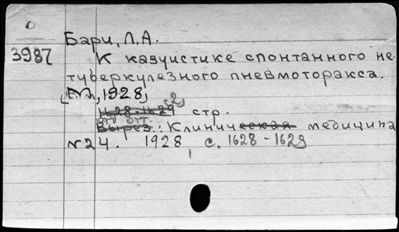 Бари, Л.А.
3987
К казуистике спонтанного не-
туберкулезного пневмоторакса.
[М., 1928]
2 стр.
Отд. отт.: Клиническая медицина
№24. 1928, с. 1628-1629